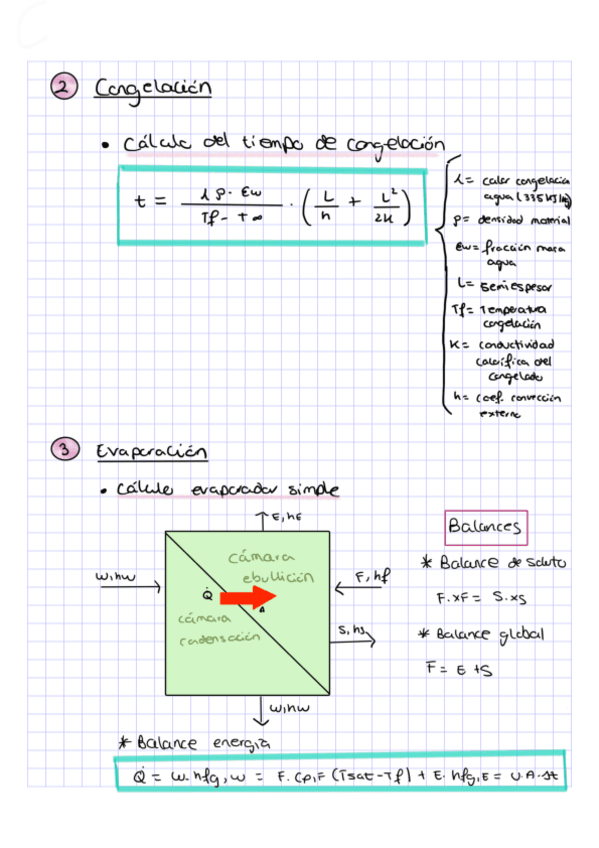 2 Congelación
• Cálculo del tiempo de congelación
t = λρ·εw / Tf - T∞ · (L/h + L²/2k)
λ= calor congelación
agua (335 kJ/kg)
ρ= densidad material
εw= fracción masa
agua
L= semiespesor
Tf= Temperatura
congelación
K= conductividad
calorífica del
congelado
h= coef. convección
externo
3 Evaporación
• Cálculo evaporador simple
E, hE
Balances
cámara
ebullición
* Balance de soluto
w, hw
F, hf
Q̇
F·xF = S·xS
A
cámara
condensación
S, hs
* Balance global
F = E + S
w, hw
* Balance energía
Q̇ = w·hfg,w = F·Cp,F (Tsat-Tf) + E·hfg,E = U·A·Δt